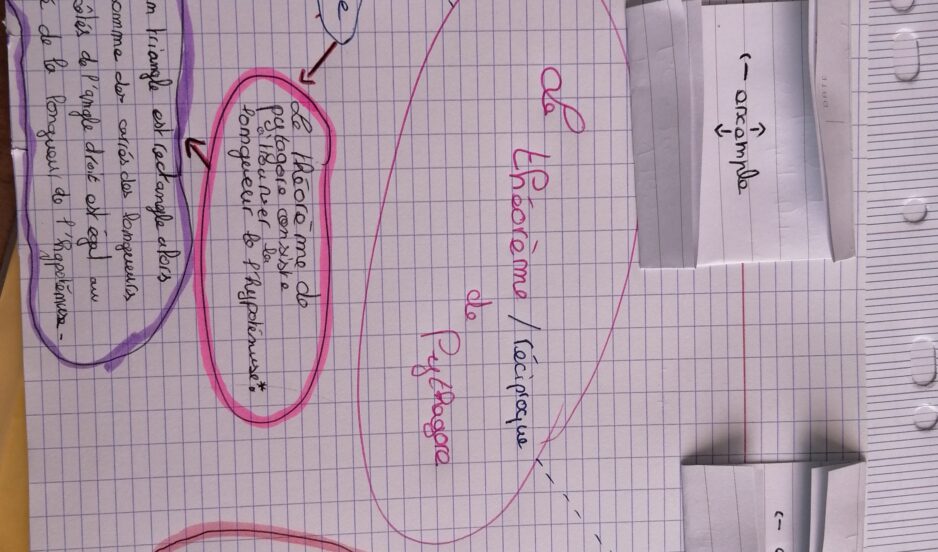 exemple
Le théorème / réciproque
de
Pythagore
Le théorème de
pytagore consiste
à trouver la
longueur de l'hypoténuse*.
triangle est rectangle alors
somme des carrés des longueurs
côtés de l'angle droit est égal au
de la longueur de l'hypoténuse.